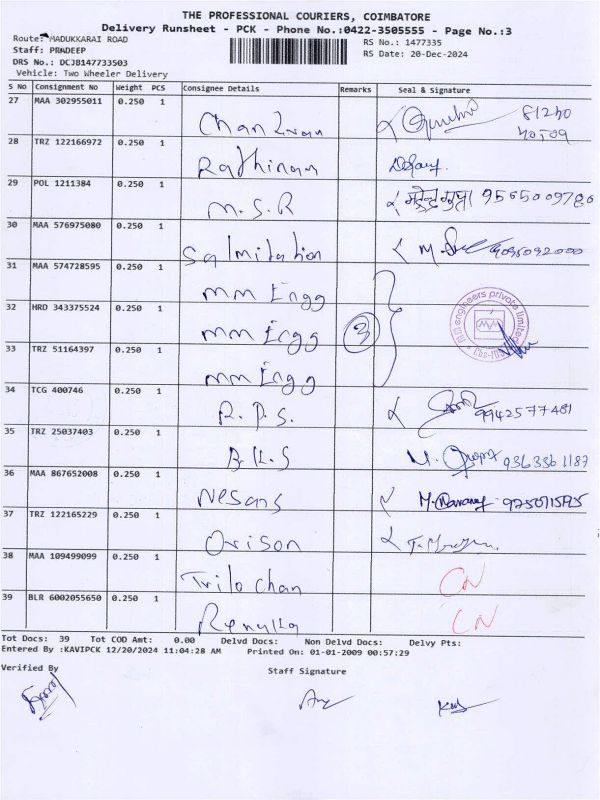 THE PROFESSIONAL COURIERS, COIMBATORE
Delivery Runsheet - PCK - Phone No.:0422-3505555 - Page No.:3
Route: MADUKKARAI ROAD
RS No.: 1477335
Staff: PRADEEP
RS Date: 20-Dec-2024
DRS No.: DCJB147733503
Vehicle: Two Wheeler Delivery
S No Consignment No Weight PCS Consignee Details Remarks Seal & Signature
27 MAA 302955011 0.250 1
28 TRZ 122166972 0.250 1 Rathinam
29 POL 1211384 0.250 1 M.S.R 9565009786
30 MAA 576975080 0.250 1 9095092000
31 MAA 574728595 0.250 1 MM Engg
32 HRD 343375524 0.250 1 MM Engg 3
33 TRZ 51164397 0.250 1 MM Engg
34 TCG 400746 0.250 1 R.P.S. 9942577481
35 TRZ 25037403 0.250 1 B.K.S 9363361187
36 MAA 867652008 0.250 1 Nesans
37 TRZ 122165229 0.250 1 Orison
38 MAA 109499099 0.250 1 Trilo Chan CN
39 BLR 6002055650 0.250 1 Renuka CN
Tot Docs: 39 Tot COD Amt: 0.00 Delvd Docs: Non Delvd Docs: Delvy Pts:
Entered By :KAVIPCK 12/20/2024 11:04:28 AM Printed On: 01-01-2009 00:57:29
Verified By
Staff Signature